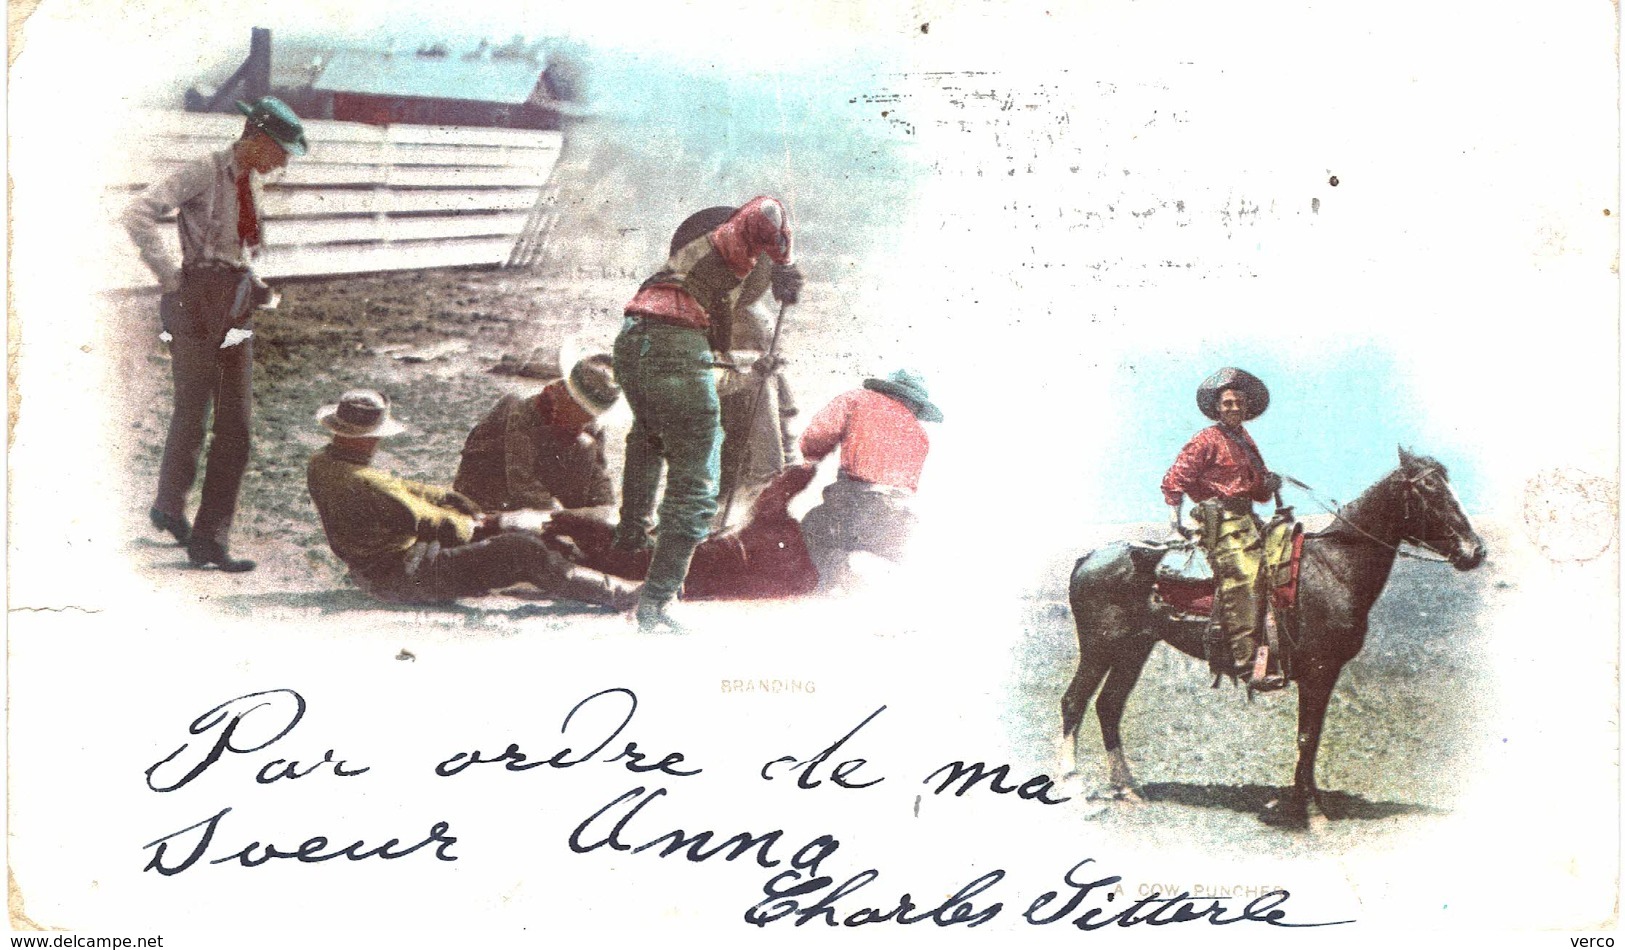 BRANDING
Par ordre de ma
soeur Anna
A COW PUNCHER
Charles Sitterle
www.delcampe.net
verco